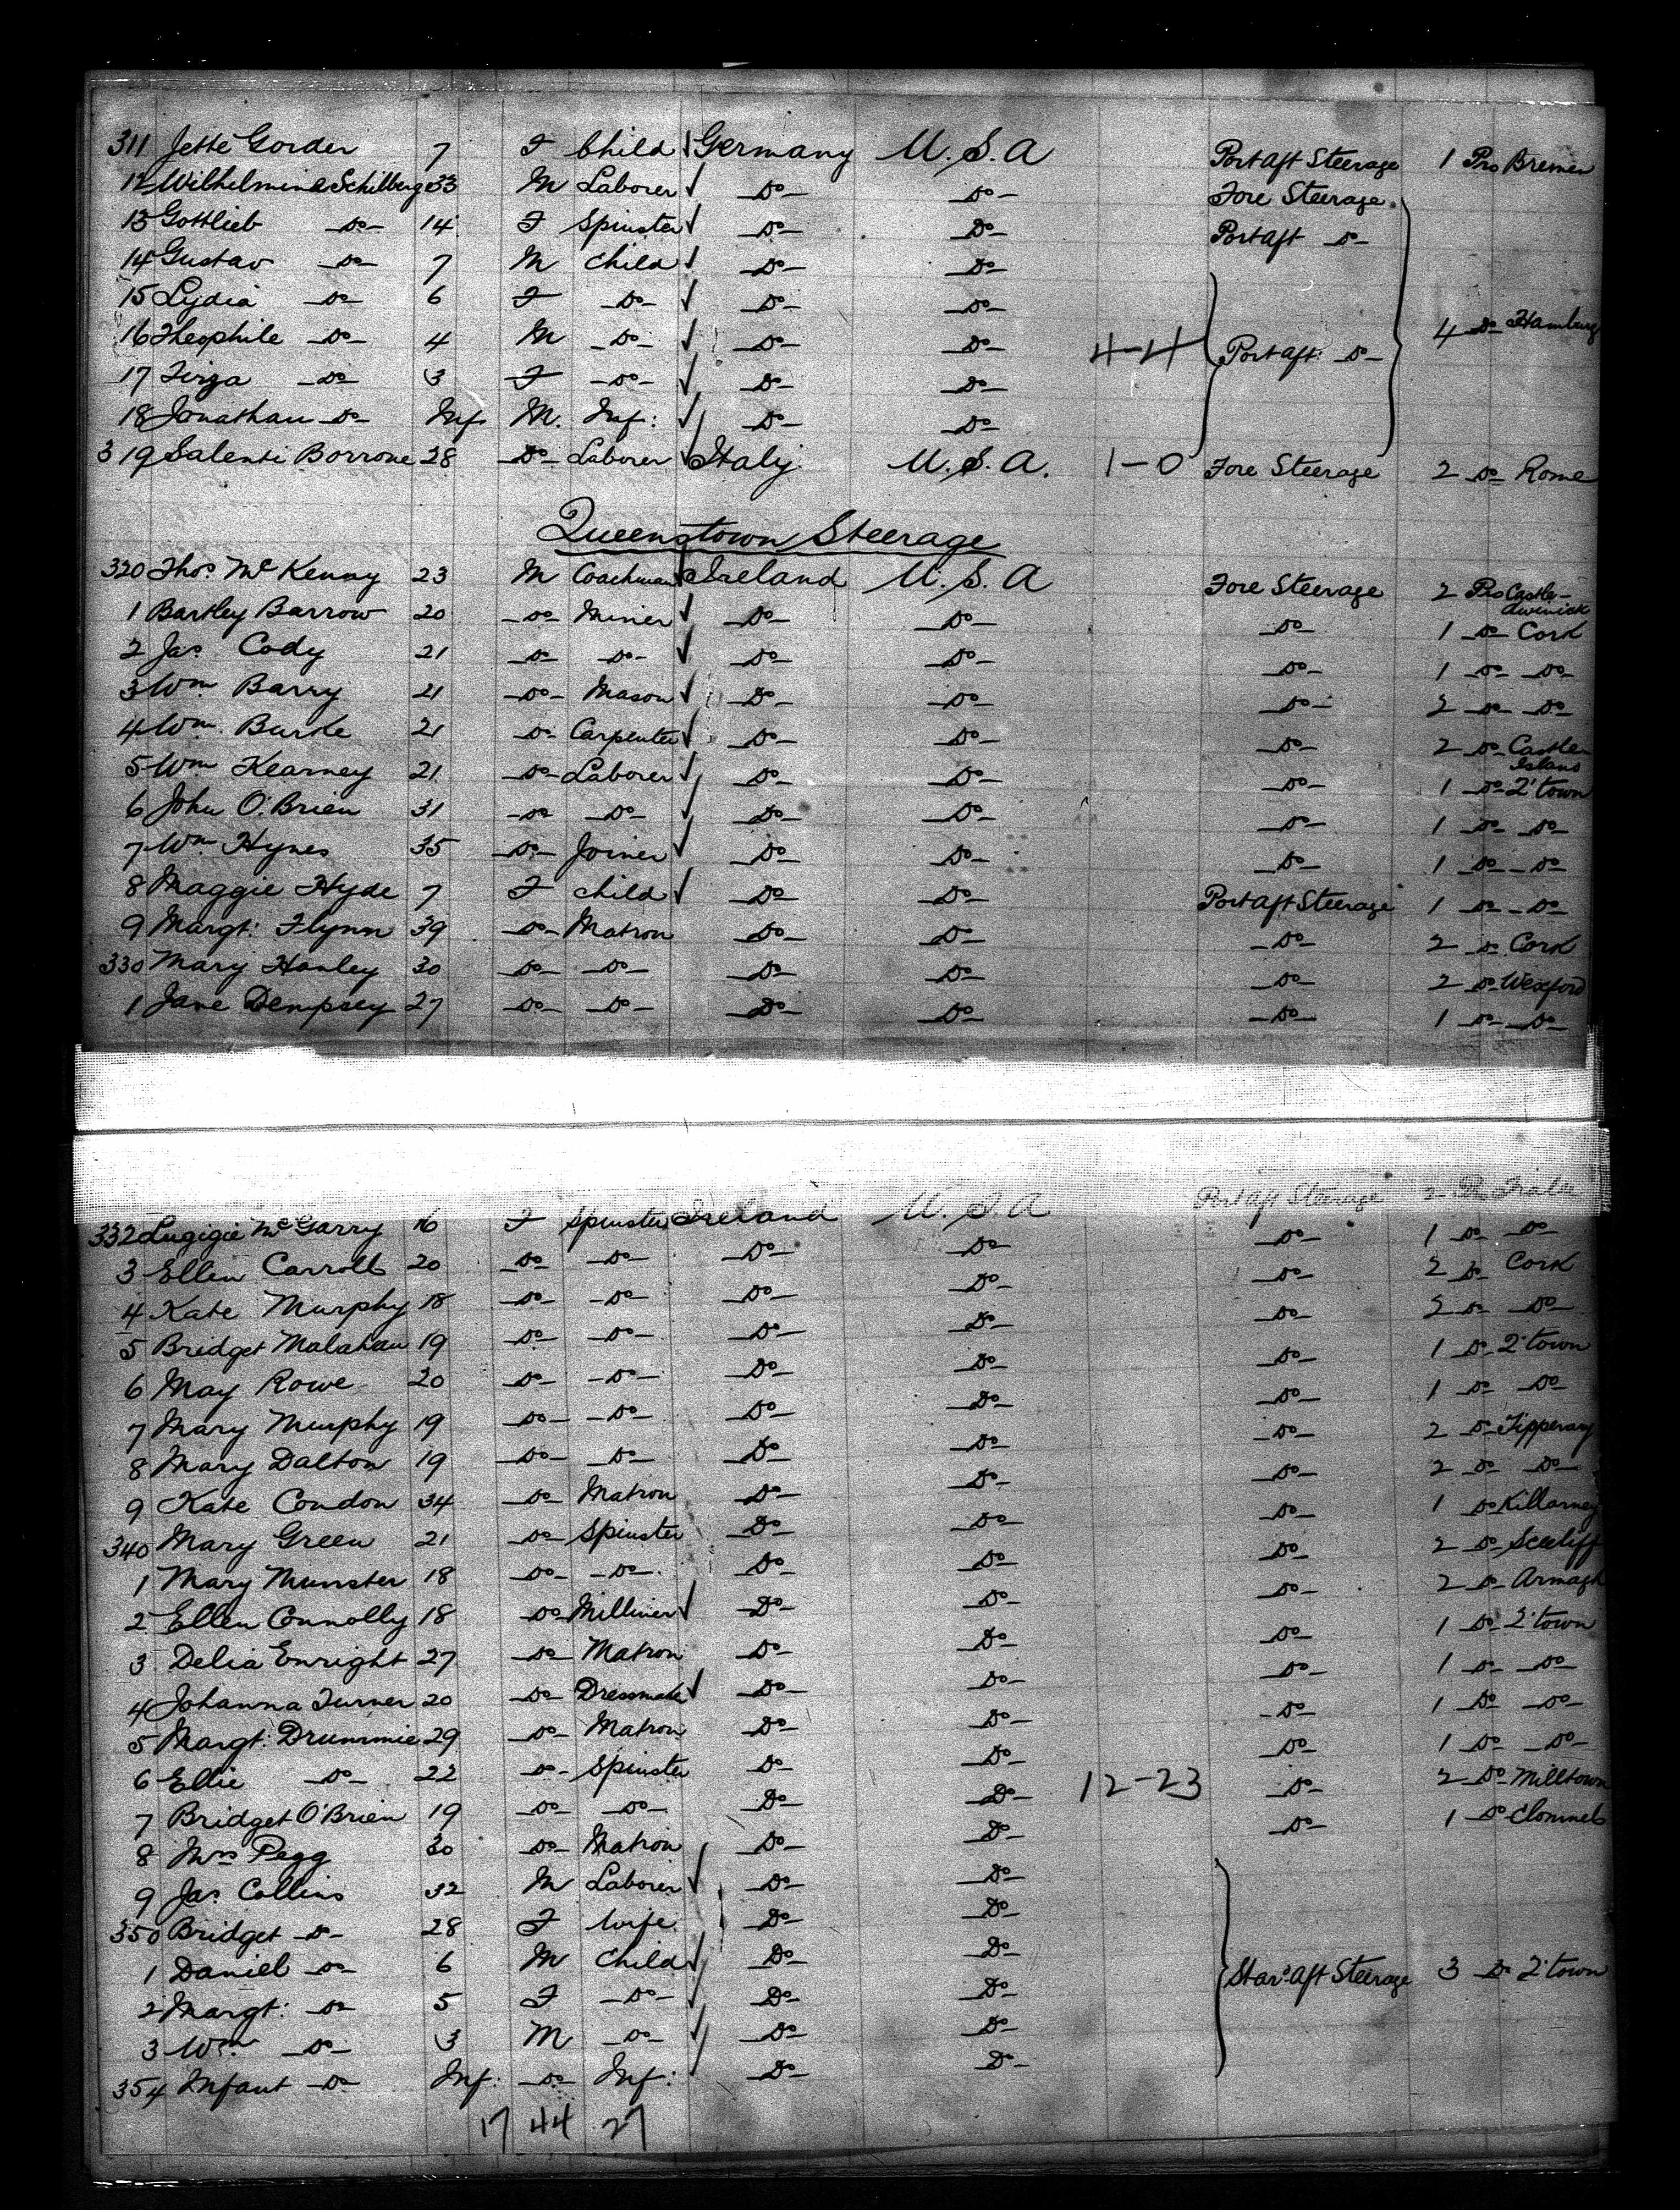 311 Jette Gorder 7 F Child Germany U.S.A Port aft Steerage 1 Pro Bremen
12 Wilhelmine Schilberg 33 M Laborer Do Do Fore Steerage
13 Gottlieb Do 14 F Spinster Do Do Port aft Do
14 Gustav Do 7 M Child Do Do
15 Lydia Do 6 F Do Do Do
16 Theophile Do 4 M Do Do Do 4-4 Port aft: Do 4 Do Hamburg
17 Tirza Do 3 F Do Do Do
18 Jonathan Do Inf M. Inf: Do Do
319 Salenti Borrone 28 Do Laborer Italy U.S.A. 1-0 Fore Steerage 2 Do Rome
Queenstown Steerage
320 Thos. McKenny 23 M Coachman Ireland U.S.A Fore Steerage 2 Pro Castle-
1 Bartley Barrow 20 Do Miner Do Do Do 1 Do Cork
2 Jas. Cody 21 Do Do Do Do Do 1 Do Do
3 Wm Barry 21 Do Mason Do Do Do 2 Do Do
4 Wm. Burke 21 Do Carpenter Do Do Do 2 Do Castle Island
5 Wm Kearney 21 Do Laborer Do Do Do 1 Do Q'town
6 John O'Brien 31 Do Do Do Do Do 1 Do Do
7 Wm Hynes 35 Do Joiner Do Do Do 1 Do Do
8 Maggie Hyde 7 F Child Do Do Port aft Steerage 1 Do Do
9 Margt: Flynn 39 Do Matron Do Do Do 2 Do Cork
330 Mary Hanley 30 Do Do Do Do Do 2 Do Wexford
1 Jane Dempsey 27 Do Do Do Do Do 1 Do Do
332 McGarry 16 F Spinster Ireland U.S.A Port aft Steerage 2 Pro Tralee
3 Ellen Carroll 20 Do Do Do Do Do 1 Do Do
4 Kate Murphy 18 Do Do Do Do Do 2 Do Cork
5 Bridget Malahan 19 Do Do Do Do Do 2 Do Do
6 May Rowe 20 Do Do Do Do Do 1 Do Q'town
7 Mary Murphy 19 Do Do Do Do Do 1 Do Do
8 Mary Dalton 19 Do Do Do Do Do 2 Do Tipperary
9 Kate Condon 34 Do Matron Do Do Do 2 Do Do
340 Mary Green 21 Do Spinster Do Do Do 1 Do Killarney
1 Mary Munster 18 Do Do Do Do Do 2 Do
2 Ellen Connolly 18 Do Milliner Do Do Do 2 Do Armagh
3 Delia Enright 27 Do Matron Do Do Do 1 Do Q'town
4 Johanna Turner 20 Do Dressmaker Do Do Do 1 Do Do
5 Margt: Drummie 29 Do Matron Do Do Do 1 Do Do
6 Ellie Do 22 Do Spinster Do Do Do 1 Do Do
7 Bridget O'Brien 19 Do Do Do Do 12-23 Do 2 Do Milltown
8 Mrs Pegg 30 Do Matron Do Do Do 1 Do Clonmel
9 Jas. Collins 32 M Laborer Do Do
350 Bridget Do 28 F Wife Do Do
1 Daniel Do 6 M Child Do Do Star'd aft Steerage 3 Do Q'town
2 Margt: Do 5 F Do Do Do
3 Wm Do 3 M Do Do Do
354 Infant Do Inf: Do Inf: Do Do
17 44 27